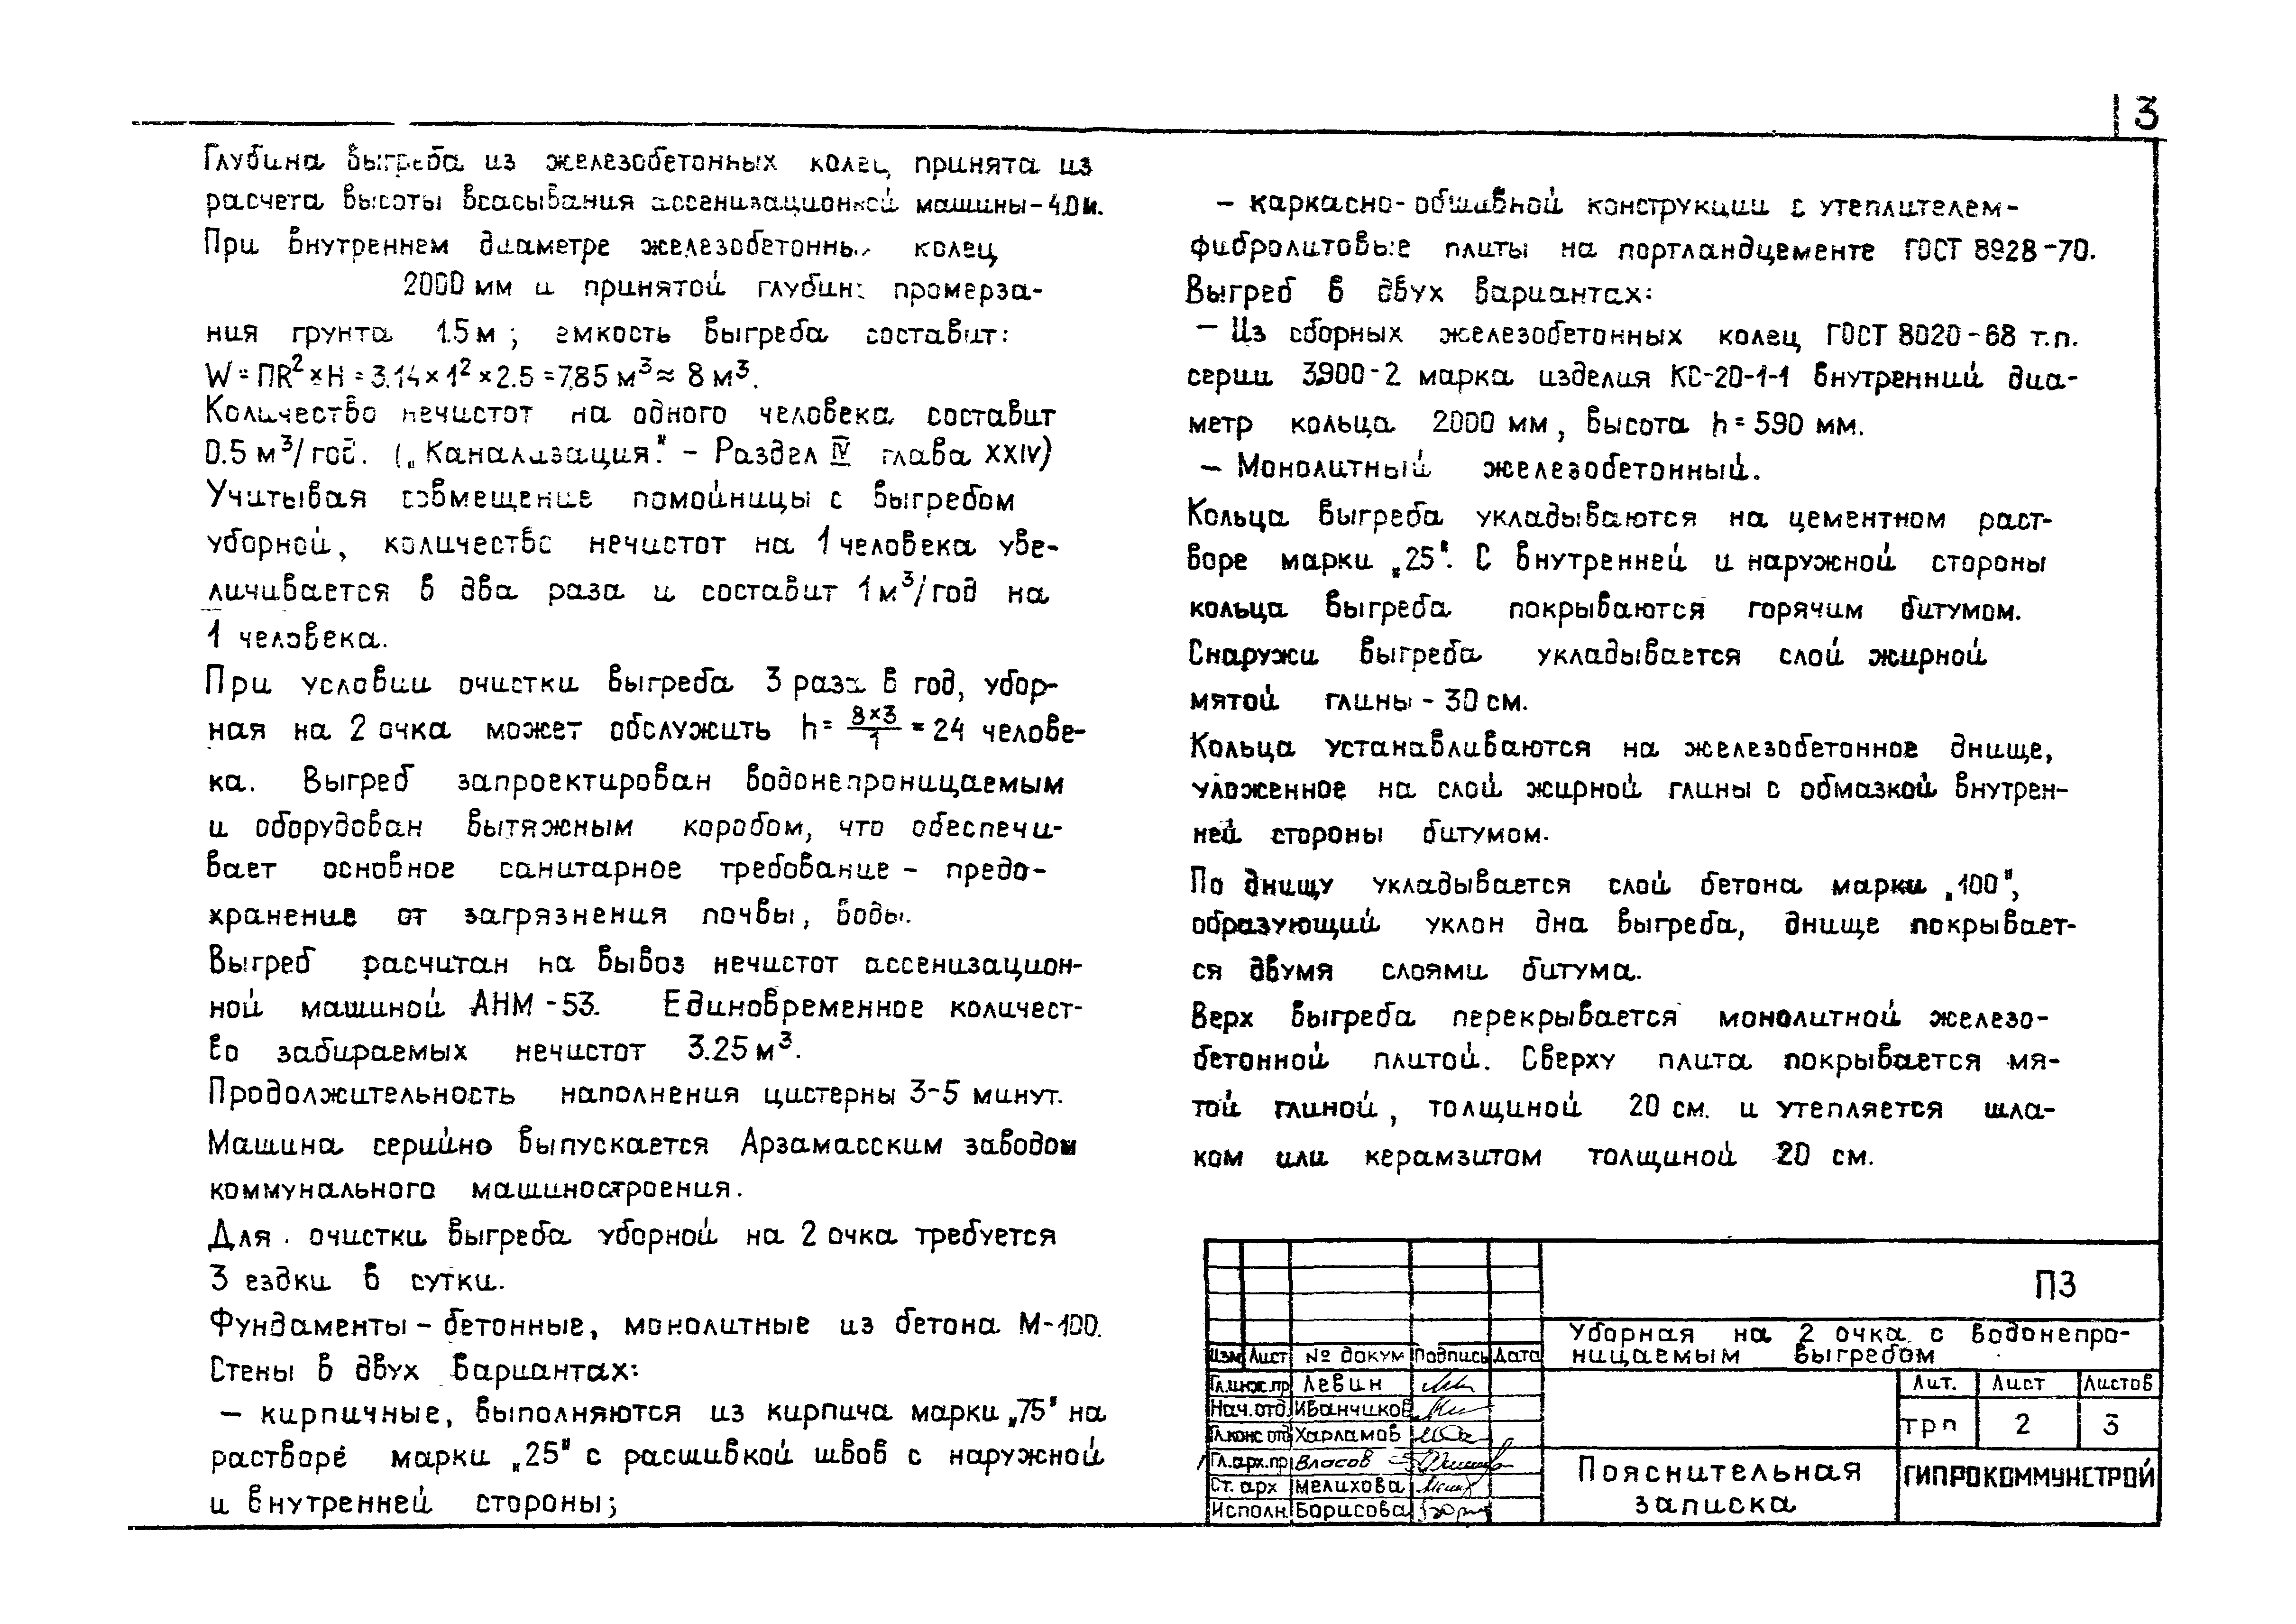 3
Глубина выгреба из железобетонных колец принята из
расчета высоты всасывания ассенизационной машины - 4.0 м.
При внутреннем диаметре железобетонных колец
2000 мм и принятой глубине промерза-
ния грунта 1.5 м ; емкость выгреба составит:
W = ПR² × H = 3.14 × 1² × 2.5 = 7.85 м³ ≈ 8 м³.
Количество нечистот на одного человека составит
0.5 м³/год. („Канализация" - Раздел IV глава XXIV)
Учитывая совмещение помойницы с выгребом
уборной, количество нечистот на 1 человека уве-
личивается в два раза и составит 1 м³/год на
1 человека.
При условии очистки выгреба 3 раза в год, убор-
ная на 2 очка может обслужить h = 8×3/1 = 24 челове-
ка. Выгреб запроектирован водонепроницаемым
и оборудован вытяжным коробом, что обеспечи-
вает основное санитарное требование - предо-
хранение от загрязнения почвы, воды.
Выгреб расчитан на вывоз нечистот ассенизацион-
ной машиной АНМ - 53. Единовременное количест-
во забираемых нечистот 3.25 м³.
Продолжительность наполнения цистерны 3-5 минут.
Машина серийно выпускается Арзамасским заводом
коммунального машиностроения.
Для очистки выгреба уборной на 2 очка требуется
3 ездки в сутки.
Фундаменты - бетонные, монолитные из бетона М-100.
Стены в двух вариантах:
- кирпичные, выполняются из кирпича марки „75" на
растворе марки „25" с расшивкой швов с наружной
и внутренней стороны;
- каркасно-обшивной конструкции с утеплителем -
фибролитовые плиты на портландцементе ГОСТ 8928-70.
Выгреб в двух вариантах:
- Из сборных железобетонных колец ГОСТ 8020-68 т.п.
серии 3.900-2 марка изделия КС-20-1-1 внутренний диа-
метр кольца 2000 мм, высота h = 590 мм.
- Монолитный железобетонный.
Кольца выгреба укладываются на цементном раст-
воре марки „25". С внутренней и наружной стороны
кольца выгреба покрываются горячим битумом.
Снаружи выгреба укладывается слой жирной
мятой глины - 30 см.
Кольца устанавливаются на железобетонное днище,
уложенное на слой жирной глины с обмазкой внутрен-
ней стороны битумом.
По днищу укладывается слой бетона марки „100",
образующий уклон дна выгреба, днище покрывает-
ся двумя слоями битума.
Верх выгреба перекрывается монолитной железо-
бетонной плитой. Сверху плита покрывается мя-
той глиной, толщиной 20 см. и утепляется шла-
ком или керамзитом толщиной 20 см.
ПЗ
Уборная на 2 очка с водонепро-
ницаемым выгребом
Изм Лист № докум Подпись Дата
Гл.инж.пр Левин
Нач.отд. Иванчиков
Гл.конс.отд Харламов
Гл.арх.пр Власов
Ст. арх Мелихова
Исполн. Борисова
Лит. Лист Листов
трп 2 3
Пояснительная
записка
ГИПРОКОММУНСТРОЙ